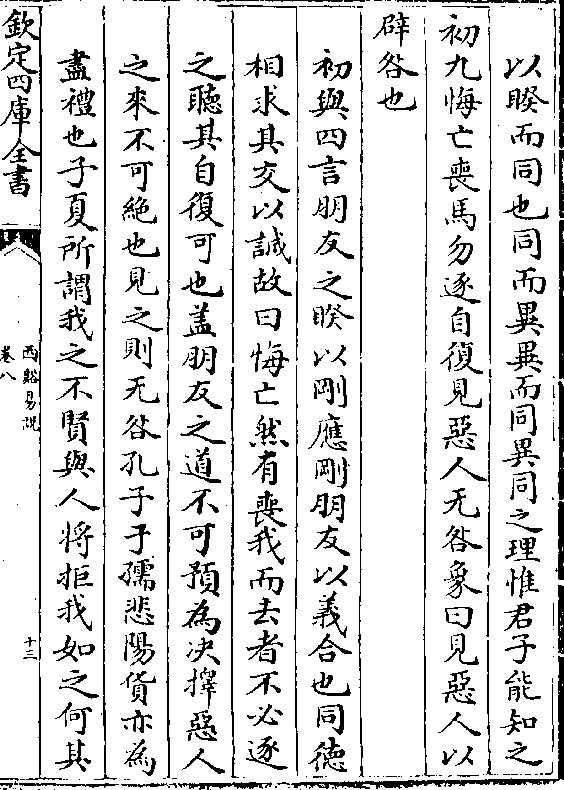 以睽而同也同而異異而同異同之理惟君子能知之
初九悔亡喪馬勿逐自復見惡人无咎象曰見惡人以
辟咎也
初與四言朋友之睽以剛應剛朋友以義合也同德
相求其交以誠故曰悔亡然有喪我而去者不必逐
之聽其自復可也盖朋友之道不可預為决擇惡人
之來不可絶也見之則无咎孔子于孺悲陽貨亦為
盡禮也子夏所謂我之不賢與人將拒我如之何其
欽定四庫全書
西谿易說
卷八
十三